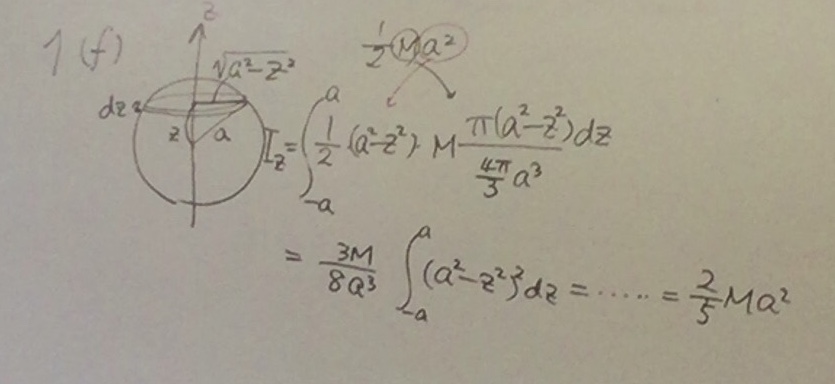 1(f)
z
√(a²−z²)
½Ma²
dz
z
a
I_z = ∫_{-a}^{a} (1/2 · (a²−z²) · M π(a²−z²)dz / (4π/3 a³)
= 3M/8a³ ∫_{-a}^{a} (a²−z²)² dz = ······ = 2/5 Ma²